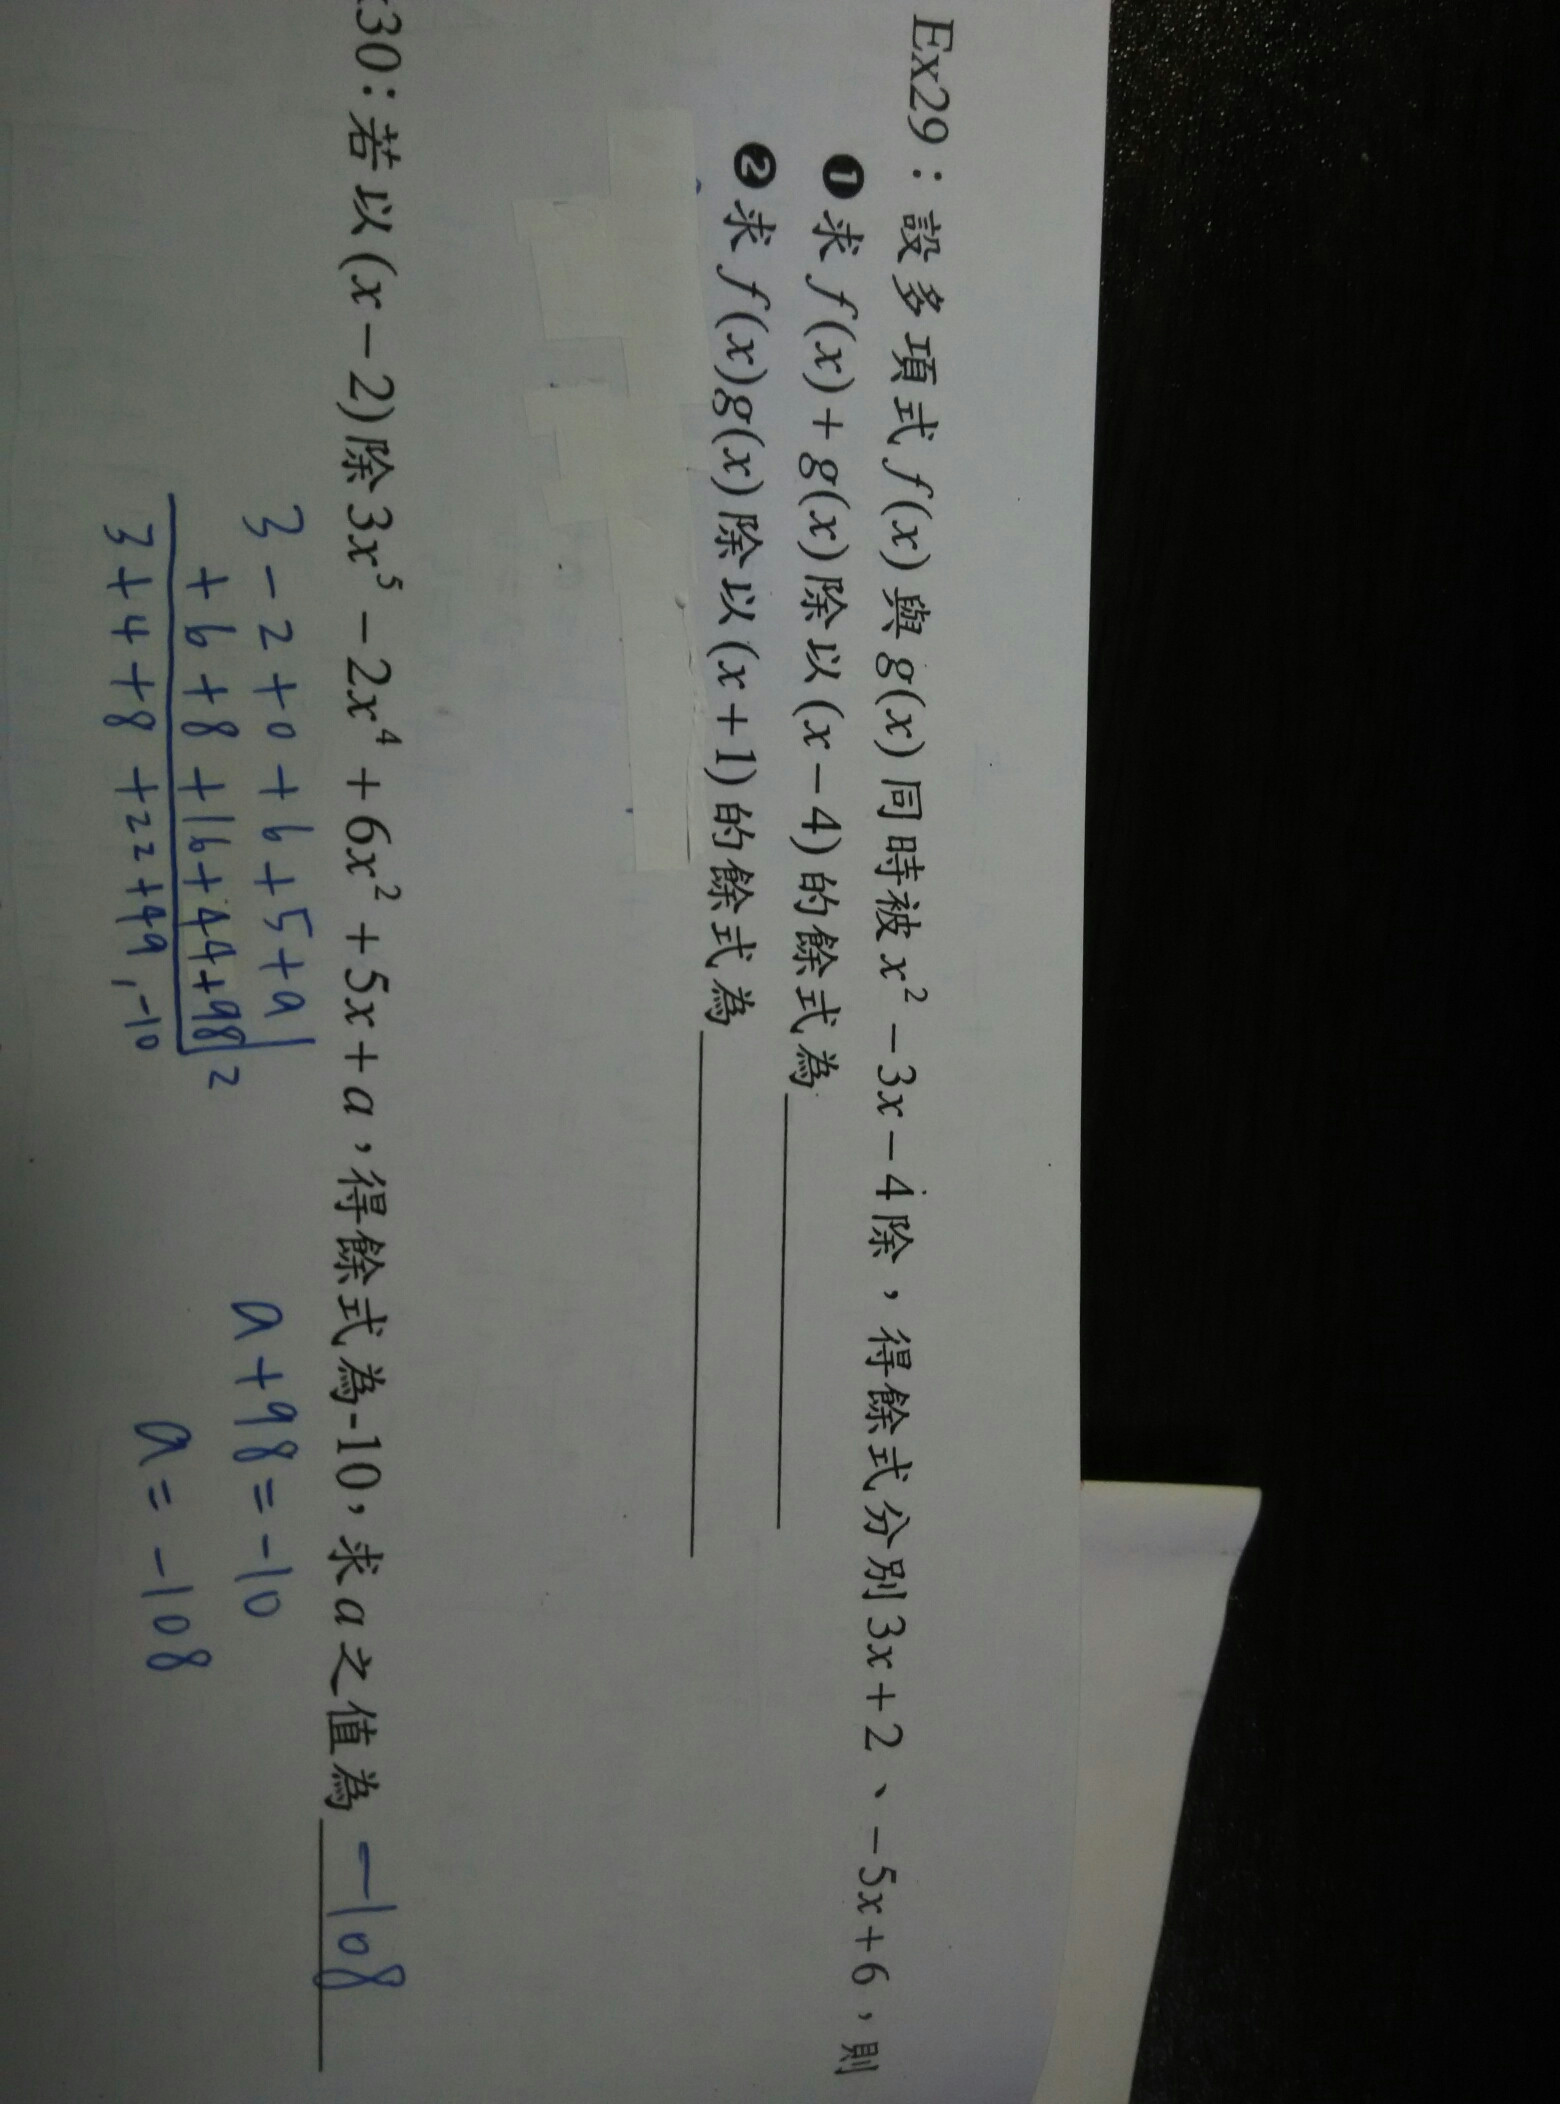 Ex29：設多項式f(x)與g(x)同時被x²－3x－4除，得餘式分別3x＋2、－5x＋6，則
❶求f(x)＋g(x)除以(x－4)的餘式為
❷求f(x)g(x)除以(x＋1)的餘式為
30：若以(x－2)除3x⁵－2x⁴＋6x²＋5x＋a，得餘式為-10，求a之值為 －108
3－2＋0＋6＋5＋a
＋6＋8＋16＋44＋98 2
3＋4＋8＋22＋49，－10
a＋98＝－10
a＝－108